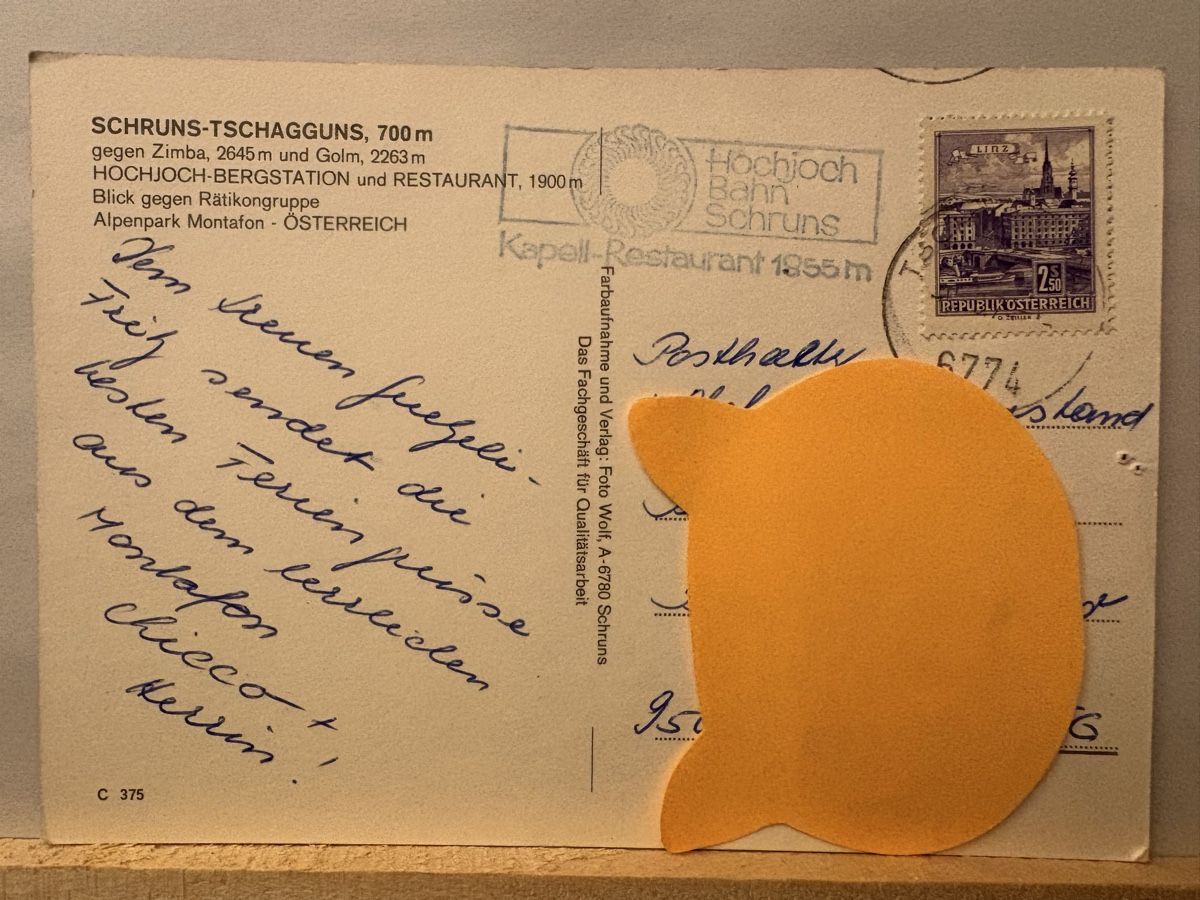 SCHRUNS-TSCHAGGUNS, 700 m
gegen Zimba, 2645 m und Golm, 2263 m
HOCHJOCH-BERGSTATION und RESTAURANT, 1900 m
Blick gegen Rätikongruppe
Alpenpark Montafon - ÖSTERREICH
Dem treuen
Fritz sendet die
besten Feriengrüsse
aus dem herrlichen
Montafon
Chicco +
Herrin!
C 375
Farbaufnahme und Verlag: Foto Wolf, A-6780 Schruns
Das Fachgeschäft für Qualitätsarbeit
Hochjoch
Bahn
Schruns
Kapell-Restaurant 1855 m
LINZ
2 S 50
REPUBLIK ÖSTERREICH
6774
Posthalter